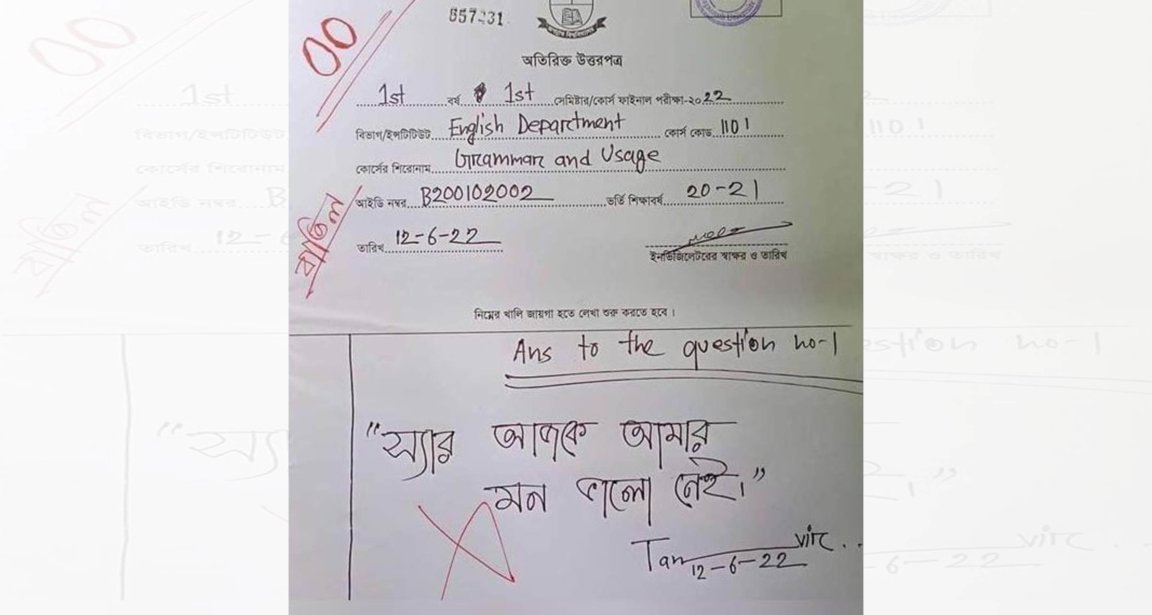 00
657231
অতিরিক্ত উত্তরপত্র
1st বর্ষ 1st সেমিষ্টার/কোর্স ফাইনাল পরীক্ষা-২০22
বিভাগ/ইন্সটিটিউট English Department কোর্স কোড 1101
কোর্সের শিরোনাম Grammar and Usage
আইডি নম্বর B200102002 ভর্তি শিক্ষাবর্ষ 20-21
বাতিল
তারিখ 12-6-22
ইনভিজিলেটরের স্বাক্ষর ও তারিখ
নিম্নের খালি জায়গা হতে লেখা শুরু করতে হবে।
Ans to the question no-1
"স্যার আজকে আমার
মন ভালো নেই।"
Tan vir
12-6-22